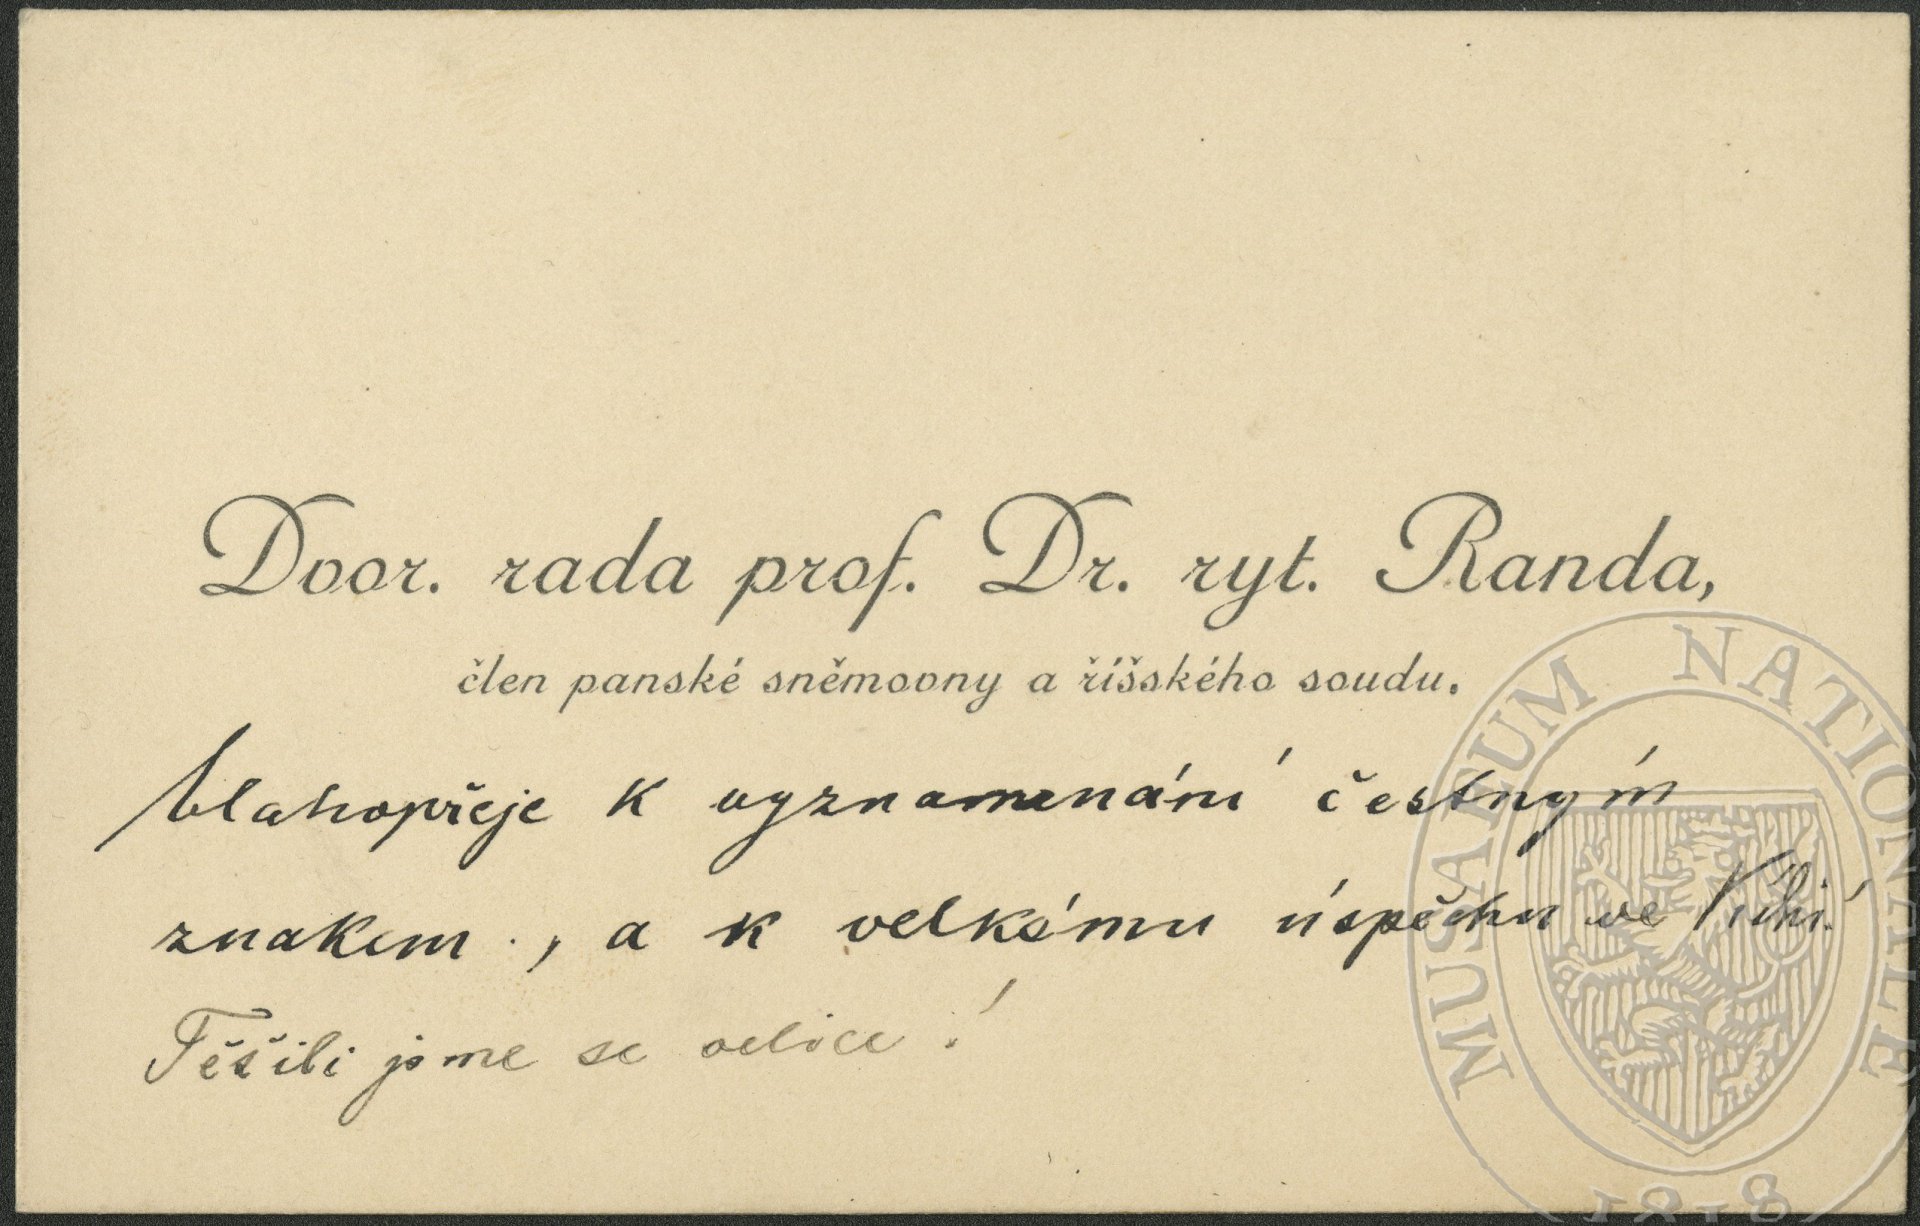 Dvor. rada prof. Dr. ryt. Randa,
člen panské sněmovny a říšského soudu.
blahopřeje k vyznamenání čestným
znakem., a k velkému úspěchu ve
Těšili jsme se velice!
MUSAEUM NATIONALE
1818